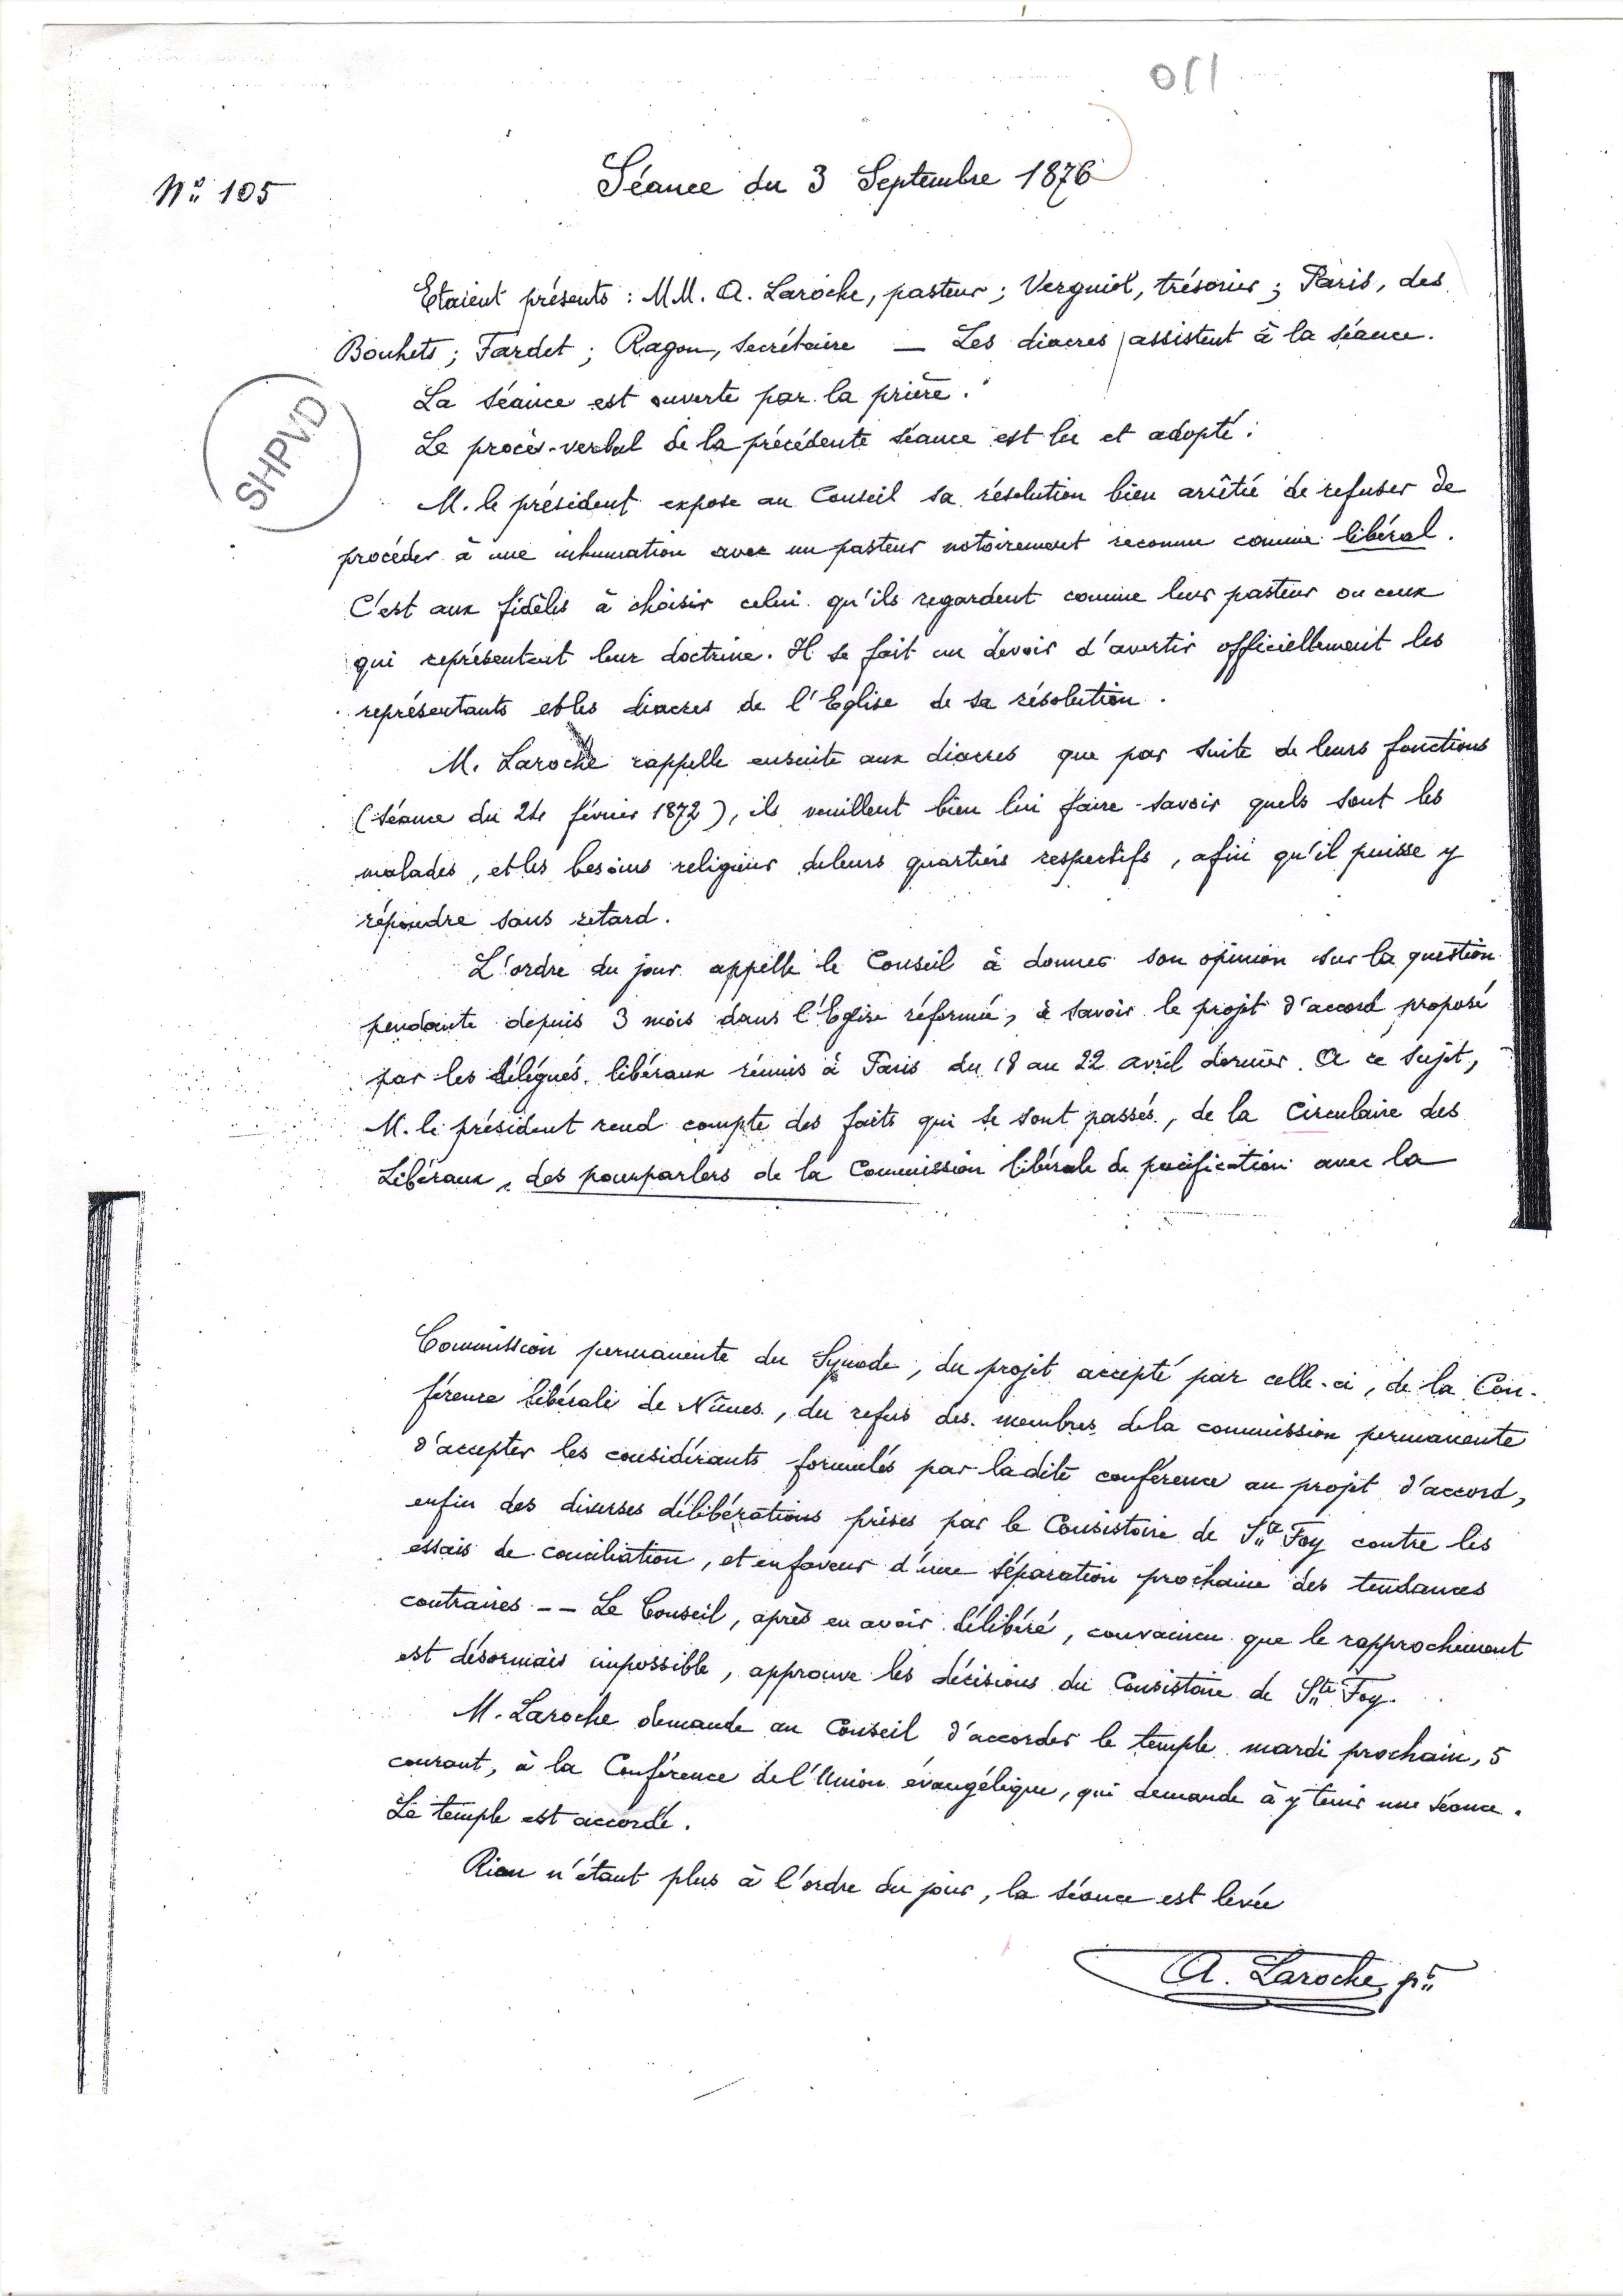 011
N° 105
Séance du 3 Septembre 1876
Etaient présents : MM. A. Laroche, pasteur ; Verguiol, trésorier ; Paris, des
Bouhets ; Fardet ; Ragon, secrétaire — Les diacres assistent à la séance.
La séance est ouverte par la prière.
SHPVD
Le procès-verbal de la précédente séance est lu et adopté.
M. le président expose au Conseil sa résolution bien arrêtée de refuser de
procéder à une inhumation avec un pasteur notoirement reconnu comme libéral.
C'est aux fidèles à choisir celui qu'ils regardent comme leur pasteur ou ceux
qui représentent leur doctrine. Il se fait un devoir d'avertir officiellement les
représentants et les diacres de l'Eglise de sa résolution.
M. Laroche rappelle ensuite aux diacres que par suite de leurs fonctions
(séance du 24 février 1872), ils veuillent bien lui faire savoir quels sont les
malades, et les besoins religieux de leurs quartiers respectifs, afin qu'il puisse y
répondre sans retard.
L'ordre du jour appelle le Conseil à donner son opinion sur la question
pendante depuis 3 mois dans l'Eglise réformée, à savoir le projet d'accord proposé
par les délégués libéraux réunis à Paris du 18 au 22 avril dernier. A ce sujet,
M. le président rend compte des faits qui se sont passés, de la Circulaire des
Libéraux, des pourparlers de la Commission libérale de pacification avec la
Commission permanente du Synode, du projet accepté par celle-ci, de la Con-
férence libérale de Nîmes, du refus des membres de la commission permanente
d'accepter les considérants formulés par ladite conférence au projet d'accord,
enfin des diverses délibérations prises par le Consistoire de Ste Foy contre les
essais de conciliation, et en faveur d'une séparation prochaine des tendances
contraires -- Le Conseil, après en avoir délibéré, convaincu que le rapprochement
est désormais impossible, approuve les décisions du Consistoire de Ste Foy.
M. Laroche demande au Conseil d'accorder le temple mardi prochain, 5
courant, à la Conférence de l'Union évangélique, qui demande à y tenir une séance.
Le temple est accordé.
Rien n'étant plus à l'ordre du jour, la séance est levée
A. Laroche, pr